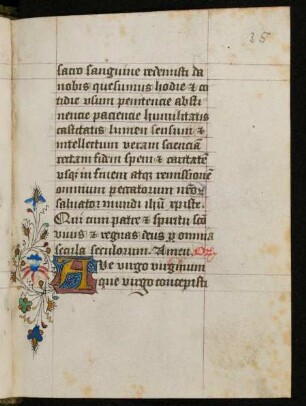 35
sacro sanguine redemisti da
nobis quesumus hodie & co
tidie usum penitencie absti
nencie paciencie humilitatis
castitatis lumen sensum &
intellectum veram scienciā
rectam fidem spem & caritatē
usqʒ in finem atqʒ remissionē
omnium peccatorum meoꝝ
saluator mundi ihū xpiste.
Qui cum patre & spiritu scō
viuis & regnas deus p omnia
secula seculorum. Amen.
Aue virgo virginum
que virgo concepisti